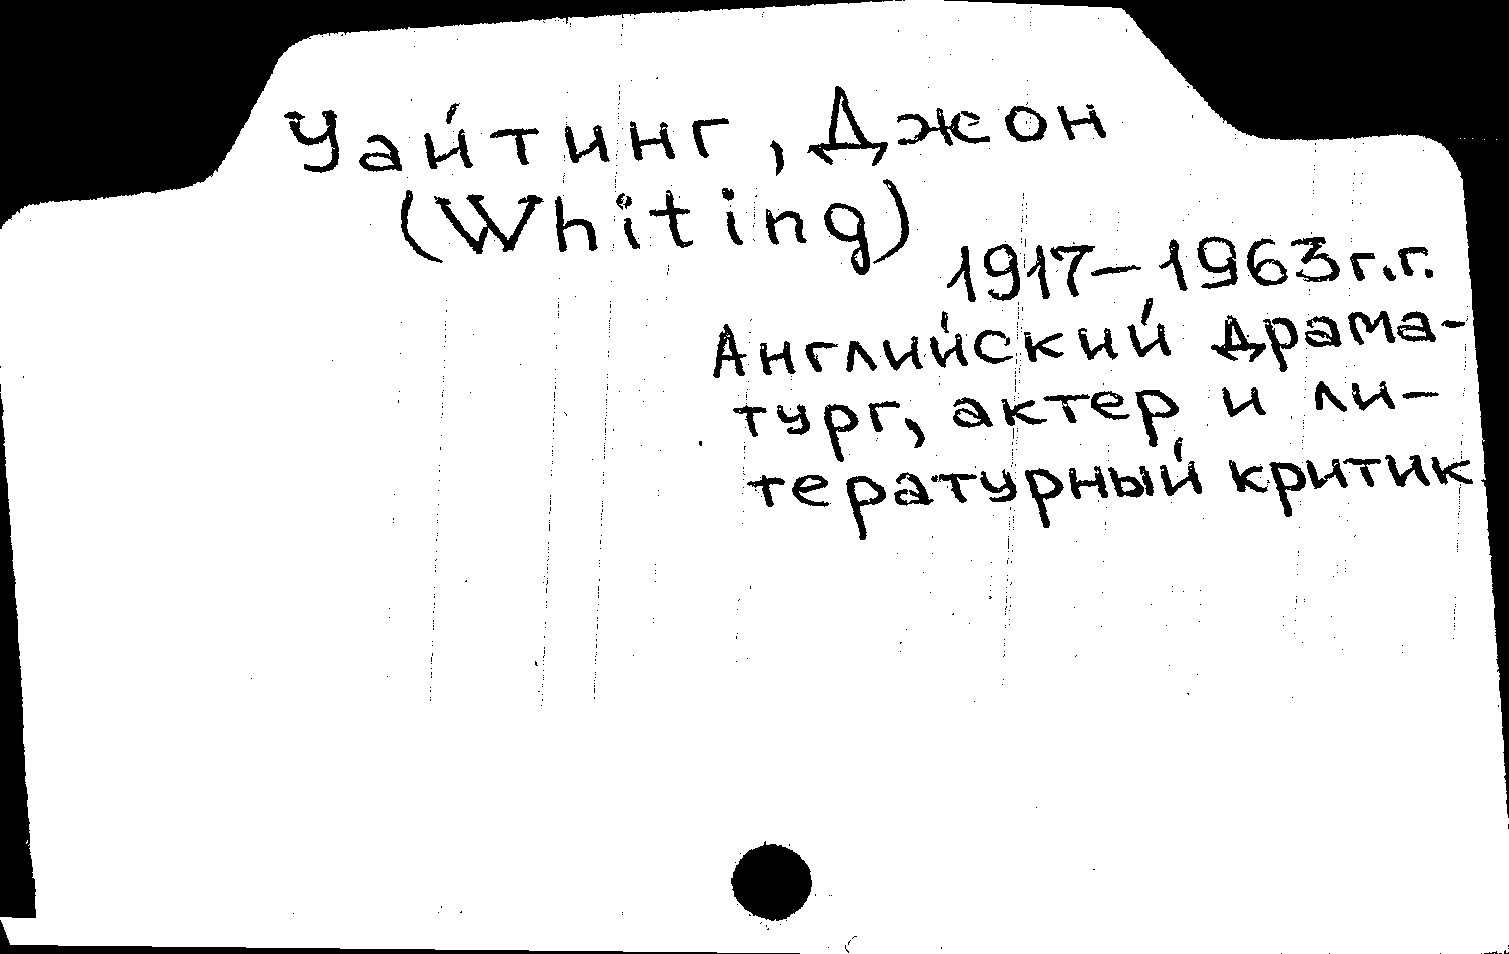 Уайтинг, Джон
(Whiting)
1917-1963г.г.
Английский драма-
тург, актер и ли-
тературный критик.